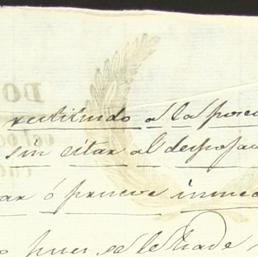 restituido a la pose
sin citar al despoja
ar ó prueve inme
pues se le trade